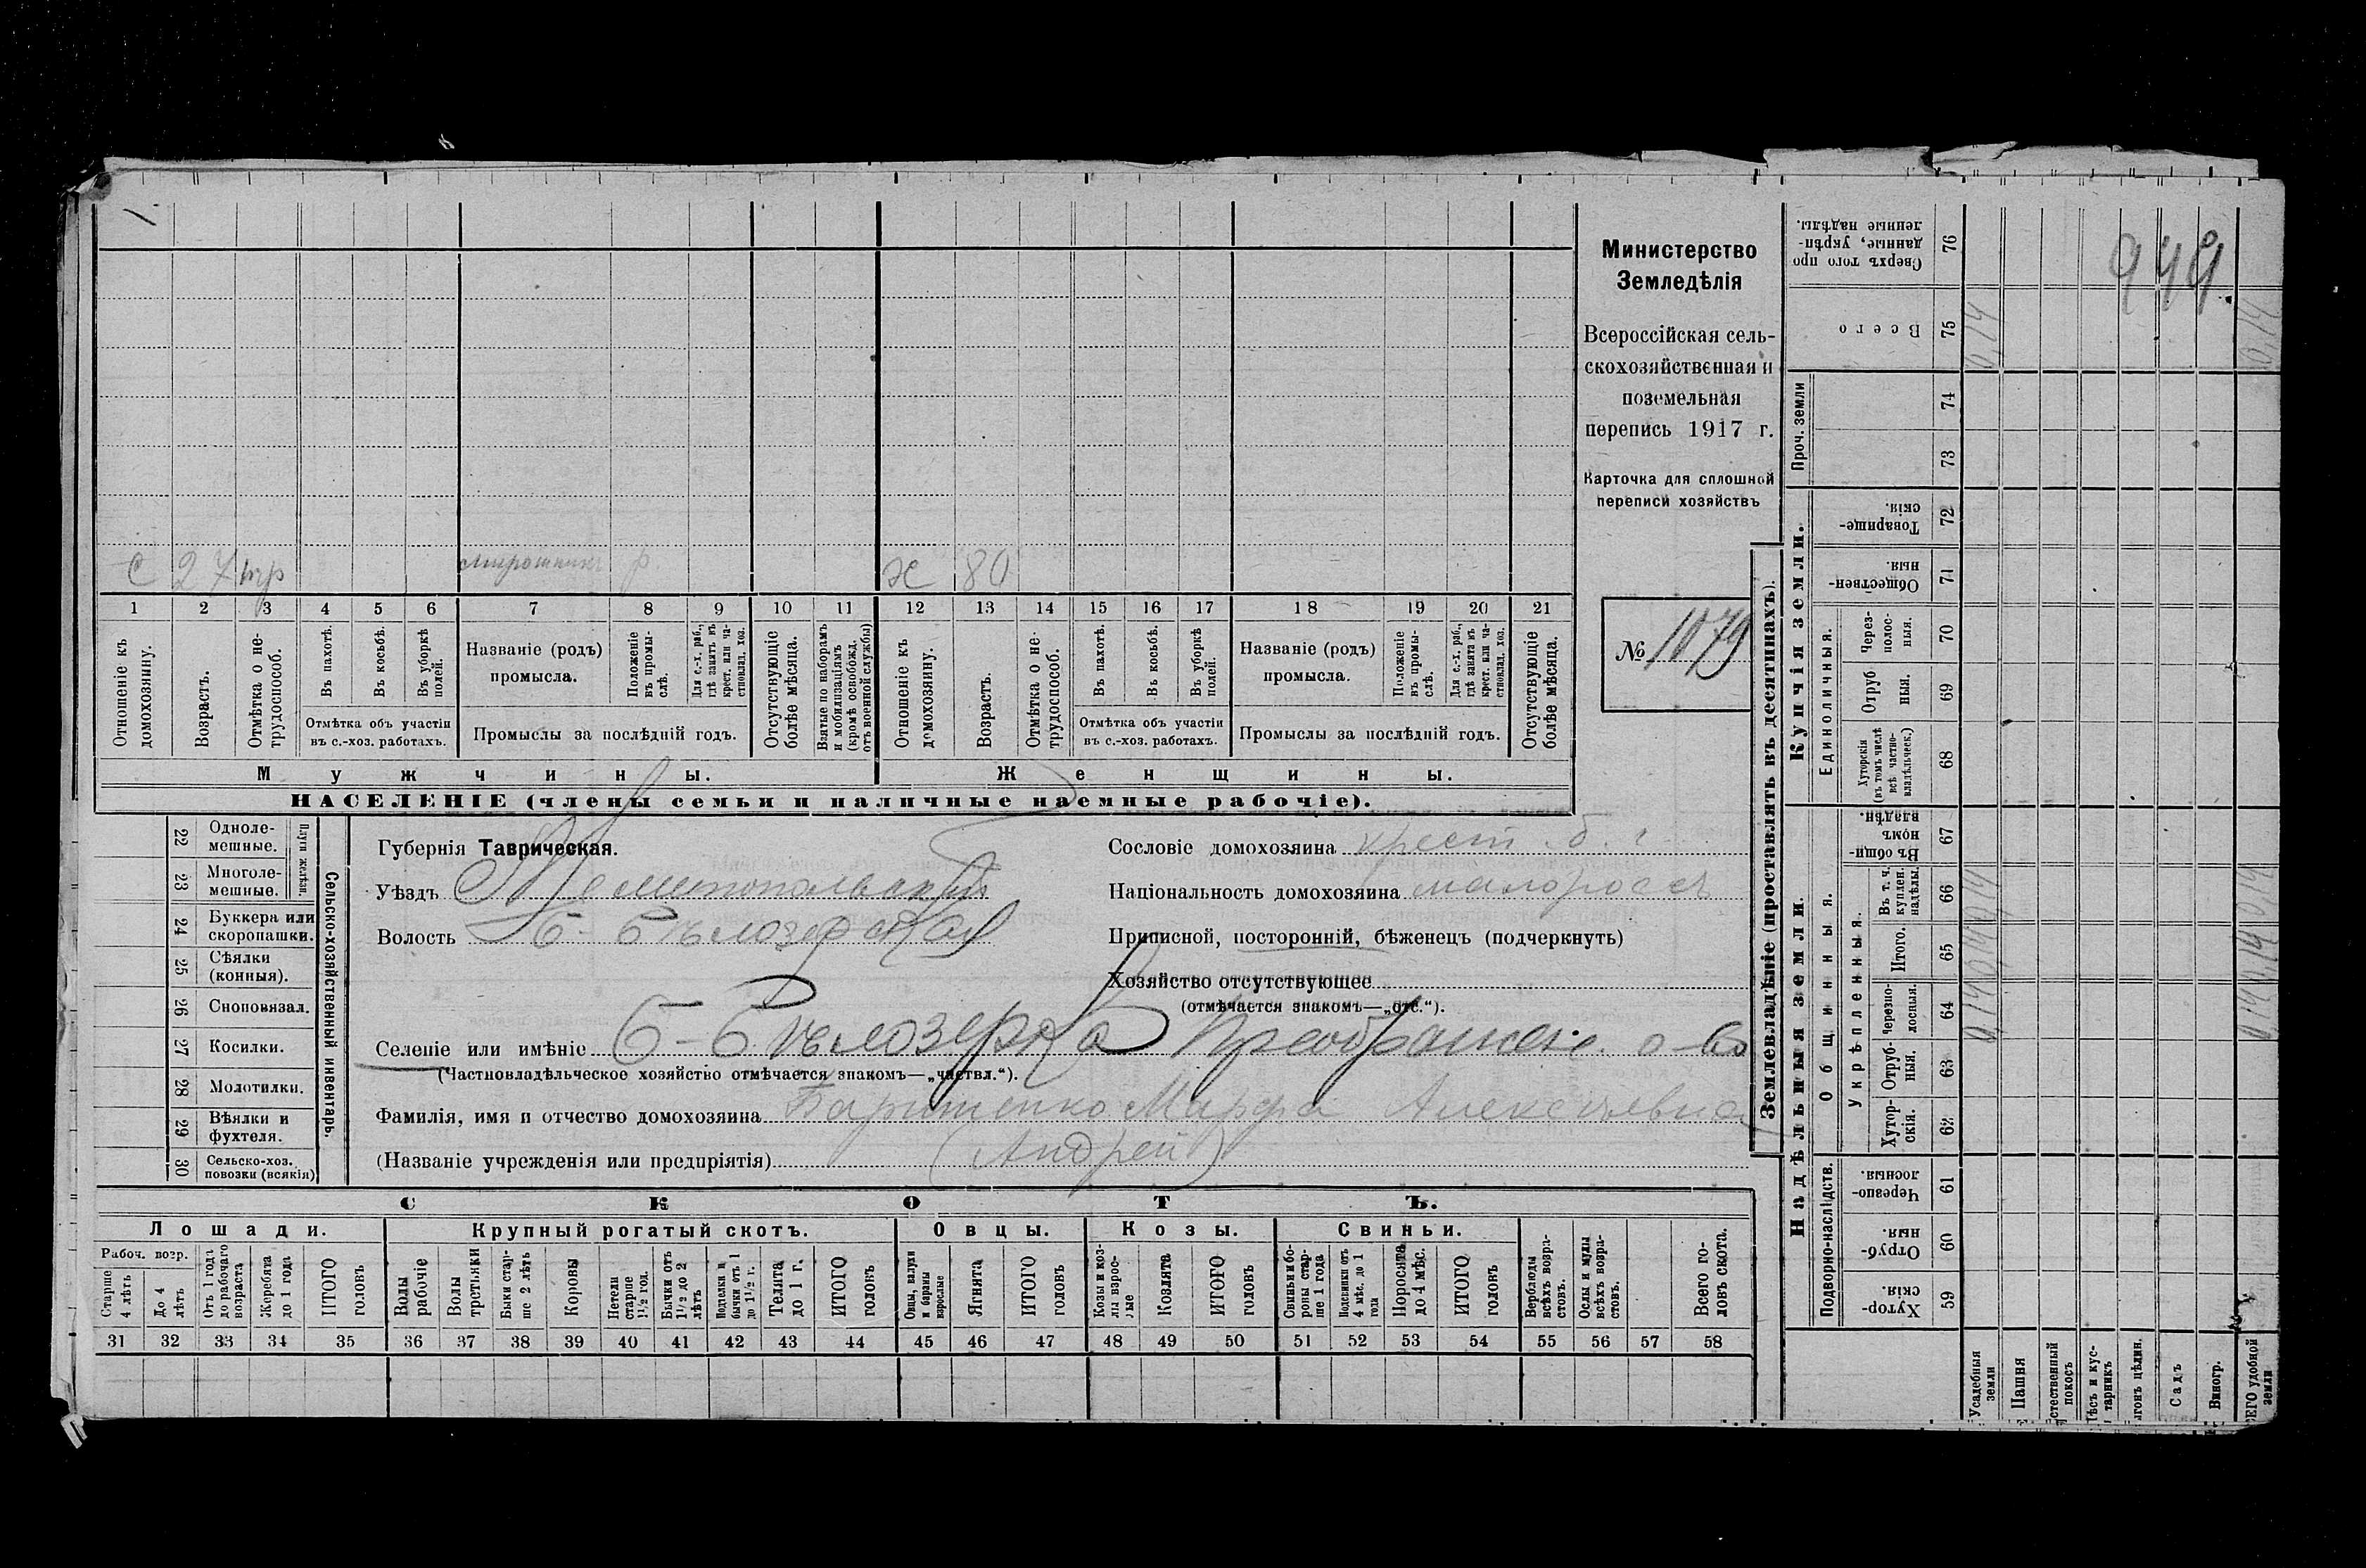 949
Министерство
Земледѣлія
Всероссійская сель-
скохозяйственная и
поземельная
перепись 1917 г.
Карточка для сплошной
переписи хозяйствъ
№ 1079
с 27 мирошникъ р. ж 80
1 2 3 4 5 6 7 8 9 10 11 12 13 14 15 16 17 18 19 20 21
Отношеніе къ домохозяину.
Возрастъ.
Отмѣтка о не-трудоспособ.
Въ пахотѣ.
Въ косьбѣ.
Въ уборкѣ полей.
Отмѣтка объ участіи въ с.-хоз. работахъ.
Названіе (родъ) промысла.
Положеніе въ промы-слѣ.
Для с.-х. раб., гдѣ занятъ въ крест. или ча-стновлад. хоз.
Промыслы за послѣдній годъ.
Отсутствующіе болѣе мѣсяца.
Взятые по наборамъ и мобилизаціямъ (кромѣ освобожд. отъ военной службы)
Отношеніе къ домохозяину.
Возрастъ.
Отмѣтка о не-трудоспособ.
Въ пахотѣ.
Въ косьбѣ.
Въ уборкѣ полей.
Отмѣтка объ участіи въ с.-хоз. работахъ.
Названіе (родъ) промысла.
Положеніе въ промы-слѣ.
Для с.-х. раб., гдѣ занята въ крест. или ча-стновлад. хоз.
Промыслы за послѣдній годъ.
Отсутствующіе болѣе мѣсяца.
Мужчины. Женщины.
НАСЕЛЕНІЕ (члены семьи и наличные наемные рабочіе).
Сельско-хозяйственный инвентарь.
Плуги желѣзн.
22 Одноле-мешные.
23 Многоле-мешные.
24 Буккера или скоропашки.
25 Сѣялки (конныя).
26 Сноповязал.
27 Косилки.
28 Молотилки.
29 Вѣялки и фухтеля.
30 Сельско-хоз. повозки (всякія)
Губернія Таврическая.
Уѣздъ Мелитопольскій
Волость Б-Бѣлозерская
Селеніе или имѣніе Б-Бѣлозерка Преображенс. о-во
(Частновладѣльческое хозяйство отмѣчается знакомъ—„частвл.“).
Сословіе домохозяина крест.
Національность домохозяина малороссъ
Приписной, посторонній, бѣженецъ (подчеркнуть)
Хозяйство отсутствующее
(отмѣчается знакомъ—„отс.“).
Фамилія, имя и отчество домохозяина Марфа Алексѣевна
(Названіе учрежденія или предпріятія) (Андрей)
СКОТЪ.
Лошади. Крупный рогатый скотъ. Овцы. Козы. Свиньи.
Рабоч. возр.
Старше 4 лѣтъ
До 4 лѣтъ
Отъ 1 года до рабочаго возраста
Жеребята до 1 года
ИТОГО головъ
Волы рабочіе
Волы третьяки
Быки стар-ше 2 лѣтъ
Коровы
Нетели старше 1½ год.
Бычки отъ 1½ до 2 лѣтъ
Подтелки и бычки отъ 1 до 1½ г.
Телята до 1 г.
ИТОГО головъ
Овцы, валухи и бараны взрослые
Ягнята
ИТОГО головъ
Козы и коз-лы взрос-лые
Козлята
ИТОГО головъ
Свиньи и бо-ровы стар-ше 1 года
Подсвинки отъ 4 мѣс. до 1 года
Поросята до 4 мѣс.
ИТОГО головъ
Верблюды всѣхъ возра-стовъ.
Ослы и мулы всѣхъ возра-стовъ.
Всего го-ловъ скота.
31 32 33 34 35 36 37 38 39 40 41 42 43 44 45 46 47 48 49 50 51 52 53 54 55 56 57 58
Землевладѣніе (проставлять въ десятинахъ).
Надѣльныя земли.
Подворно-наслѣдств.
59 Хутор-скія.
60 Отруб-ныя.
61 Черезпо-лосныя.
Общинныя.
Укрѣпленныя.
62 Хутор-скія.
63 Отруб-ныя.
64 Черезпо-лосныя.
65 Итого.
66 Въ т. ч. куплен. надѣлы.
67 Въ общи-номъ владѣн.
Купчія земли.
Единоличныя.
68 Хуторскія (въ томъ числѣ всѣ частно-владѣльческ.)
69 Отруб ныя.
70 Через-полос-ныя.
71 Обществен-ныя.
72 Товарище-скія.
Проч. земли
73
74
75 Всего
76 Сверхъ того про данные, укрѣп-ленные надѣлы.
Усадебныя земли 0,14 0,14 0,14 0,14
Пашня
стественный покосъ
Лѣсъ и кус-тарникъ
ыгонъ цѣлин.
Садъ
Виногр.
СЕГО удобной земли 0,14 0,14 0,14 0,14